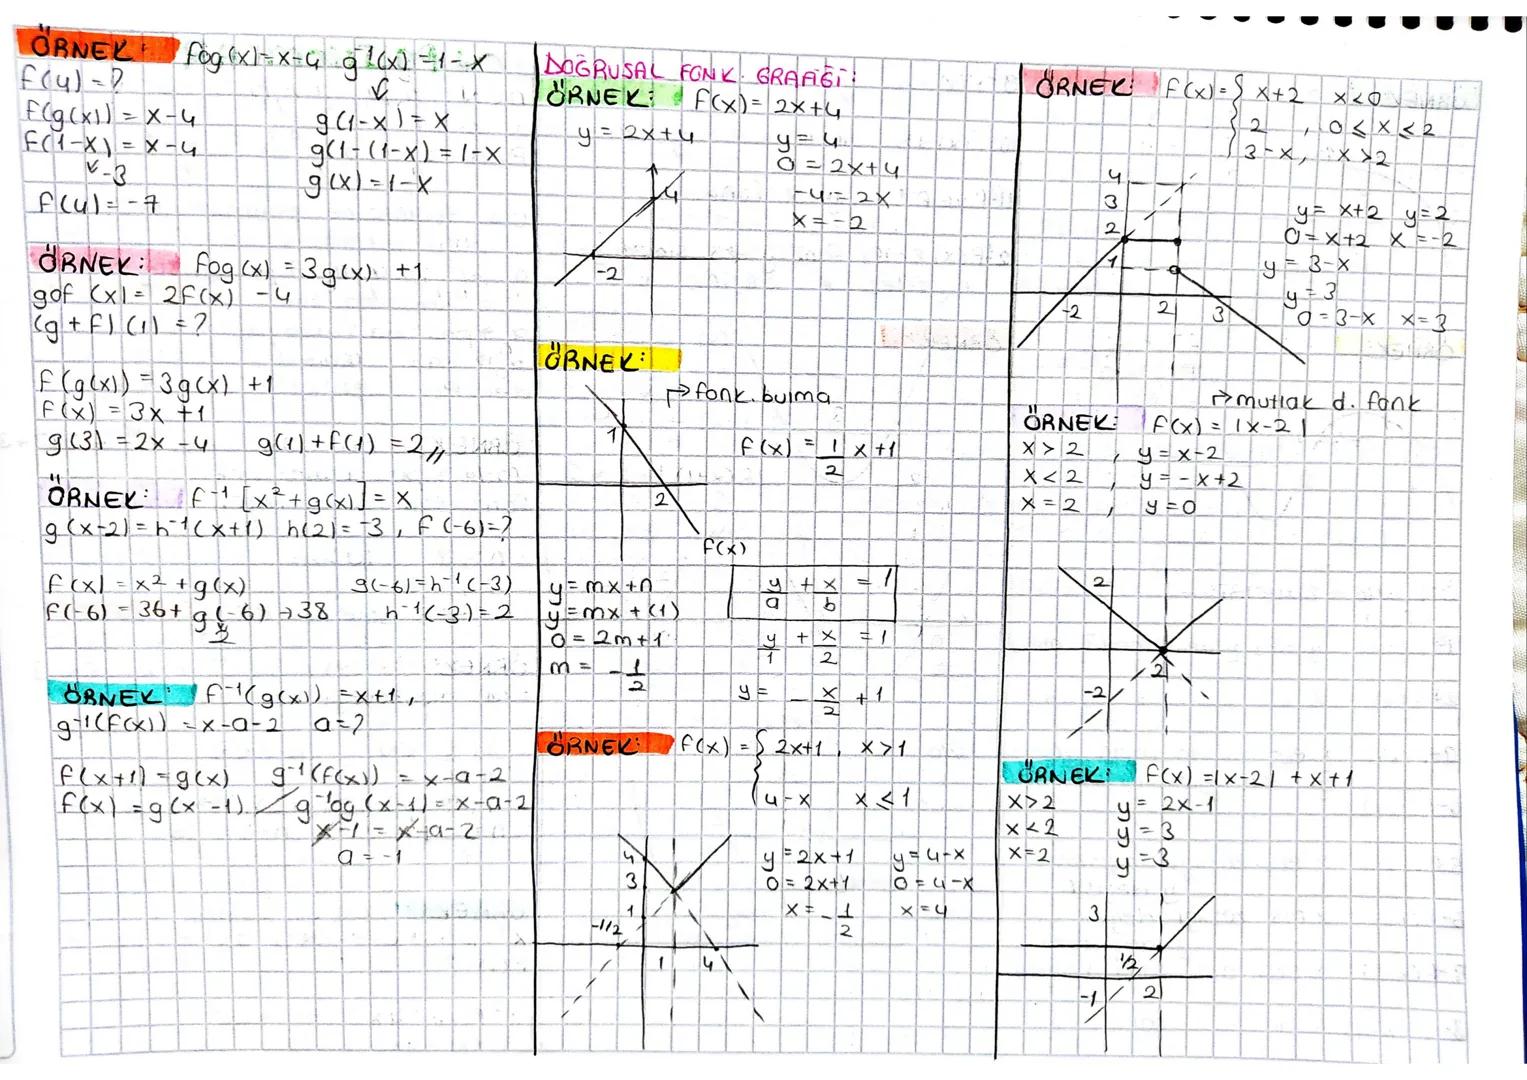 ÖRNEK: fog(x)=x-4 g⁻¹(x)=1-x
f(4)=?
f(g(x))=x-4 g(1-x)=x
f(1-x)=x-4 g(1-(1-x)=1-x
-3 g(x)=1-x
f(4)=-7
ÖRNEK: fog(x)=3g(x)+1
gof(x)=2f(x)-4
(g+f)(1)=?
f(g(x))=3g(x)+1
f(x)=3x+1
g(3)=2x-4 g(1)+f(1)=2,,
ÖRNEK: f⁻¹[x²+g(x)]=x
g(x-2)=h⁻¹(x+1) h(2)=-3, f(-6)=?
f(x)=x²+g(x) g(-6)=h⁻¹(-3)
f(-6)=36+g(-6)→38 h⁻¹(-3)=2
2
ÖRNEK: f⁻¹(g(x))=x+1,
g⁻¹(f(x))=x-a-2 a=?
f(x+1)=g(x) g⁻¹(f(x))=x-a-2
f(x)=g(x-1) g⁻¹og(x-1)=x-a-2
x-1=x-a-2
a=-1
DOĞRUSAL FONK. GRAFİĞİ:
ÖRNEK: f(x)=2x+4
y=2x+4 y=4
0=2x+4
-4=2x
x=-2
4
-2
ÖRNEK:
→fonk. bulma
1
f(x)=1/2 x+1
2
f(x)
y=mx+n y/a + x/b = 1
y=mx+(1)
0=2m+1 y/1 + x/2 = 1
m=-1/2
y=-x/2+1
ÖRNEK: f(x)={ 2x+1, x>1
4-x x≤1
4 y=2x+1 y=4-x
3 0=2x+1 0=4-x
1 x=-1/2 x=4
-1/2
1 4
ÖRNEK: f(x)={ x+2 x<0
2, 0≤x≤2
3-x, x>2
4
3 y=x+2 y=2
2 0=x+2 x=-2
1 y=3-x
y=3
-2 2 3 0=3-x x=3
→mutlak d. fonk
ÖRNEK: f(x)=|x-2|
x>2, y=x-2
x<2, y=-x+2
x=2, y=0
2
2
-2
ÖRNEK: f(x)=|x-2|+x+1
x>2 y=2x-1
x<2 y=3
x=2 y=3
3
1/2
-1 2